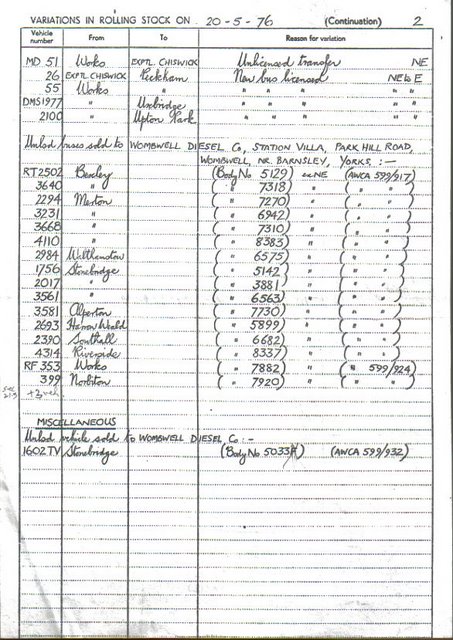 VARIATIONS IN ROLLING STOCK ON 20-5-76 (Continuation) 2
Vehicle number From To Reason for variation
MD 51 Works EXPTL CHISWICK Unlicensed transfer NE
26 EXPTL CHISWICK Peckham New bus licensed NE to E
55 Works " " " " " "
DMS1977 " Uxbridge " " " " "
2100 " Upton Park " " " " "
Unlsd buses sold to WOMBWELL DIESEL Co, STATION VILLA, PARK HILL ROAD,
WOMBWELL, NR. BARNSLEY, YORKS. :—
RT2502 Bexley (Body No 5129) ex NE (AWCA 599/917)
3640 " ( " 7318) " ( " " )
2294 Merton ( " 7270) " ( " " )
3231 " ( " 6942) " ( " " )
3668 " ( " 7310) " ( " " )
4110 " ( " 8383) " ( " " )
2984 Walthamstow ( " 6575) " ( " " )
1756 Stonebridge ( " 5142) " ( " " )
2017 " ( " 3881) " ( " " )
3561 " ( " 6563) " ( " " )
3581 Alperton ( " 7730) " ( " " )
2693 Harrow Weald ( " 5899) " ( " " )
2390 Southall ( " 6682) " ( " " )
4314 Riverside ( " 8337) " ( " " )
RF 353 Works ( " 7882) " ( " 599/924)
399 Norbiton ( " 7920) " ( " " )
MISCELLANEOUS
Unlsd vehicle sold to WOMBWELL DIESEL Co :-
1602TV Stonebridge (Body No 5033A) (AWCA 599/932)